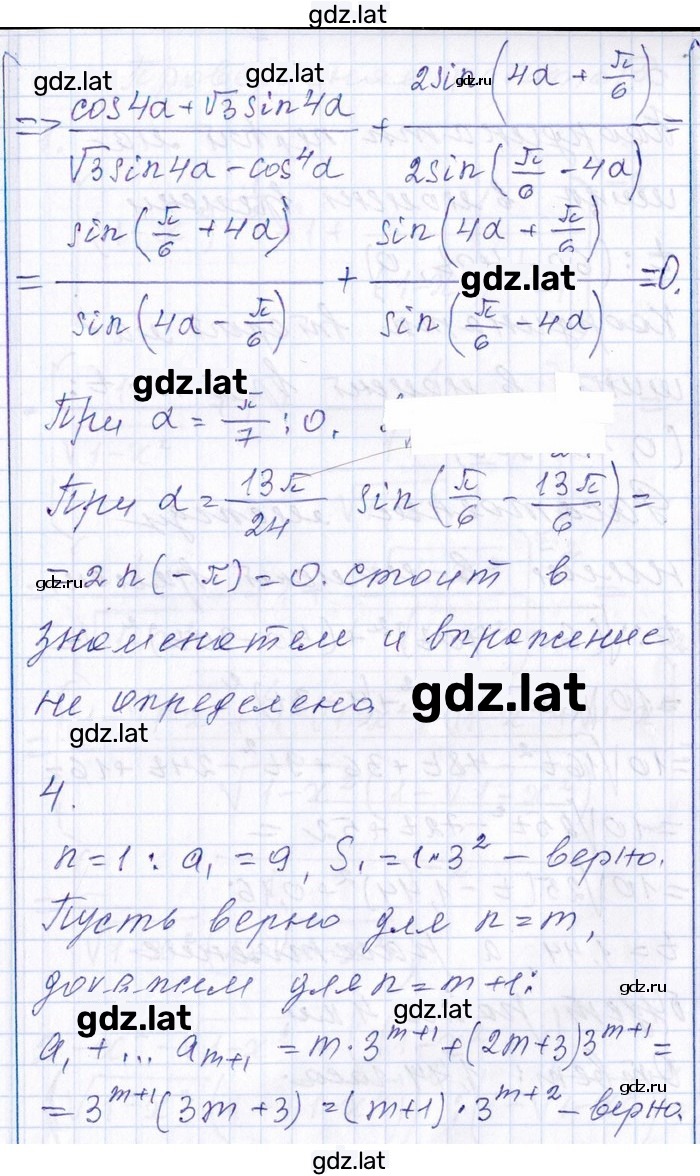 gdz.lat
gdz.lat
gdz.ru
=> (cos4α + √3 sin4α)/(√3 sin4α - cos⁴α) + (2sin(4α + π/6))/(2sin(π/6 - 4α)) =
= (sin(π/6 + 4α))/(sin(4α - π/6)) + (sin(4α + π/6))/(sin(π/6 - 4α)) = 0.
gdz.lat
gdz.lat
При α = π/7 : 0.
При α = 13π/24 sin(π/6 - 13π/6) =
gdz.ru
gdz.ru
= 2n(-π) = 0. стоит в
знаменателе и впражение
не определена
gdz.lat
gdz.lat
4.
n=1 : a₁ = 9, S₁ = 1·3² – верно.
Пусть верно для n=m,
докажем для n=m+1:
gdz.ru
gdz.lat
gdz.lat
a₁ + ... a_{m+1} = m·3^{m+1} + (2m+3)3^{m+1} =
gdz.ru
= 3^{m+1}(3m+3) = (m+1)·3^{m+2} – верно.
gdz.lat